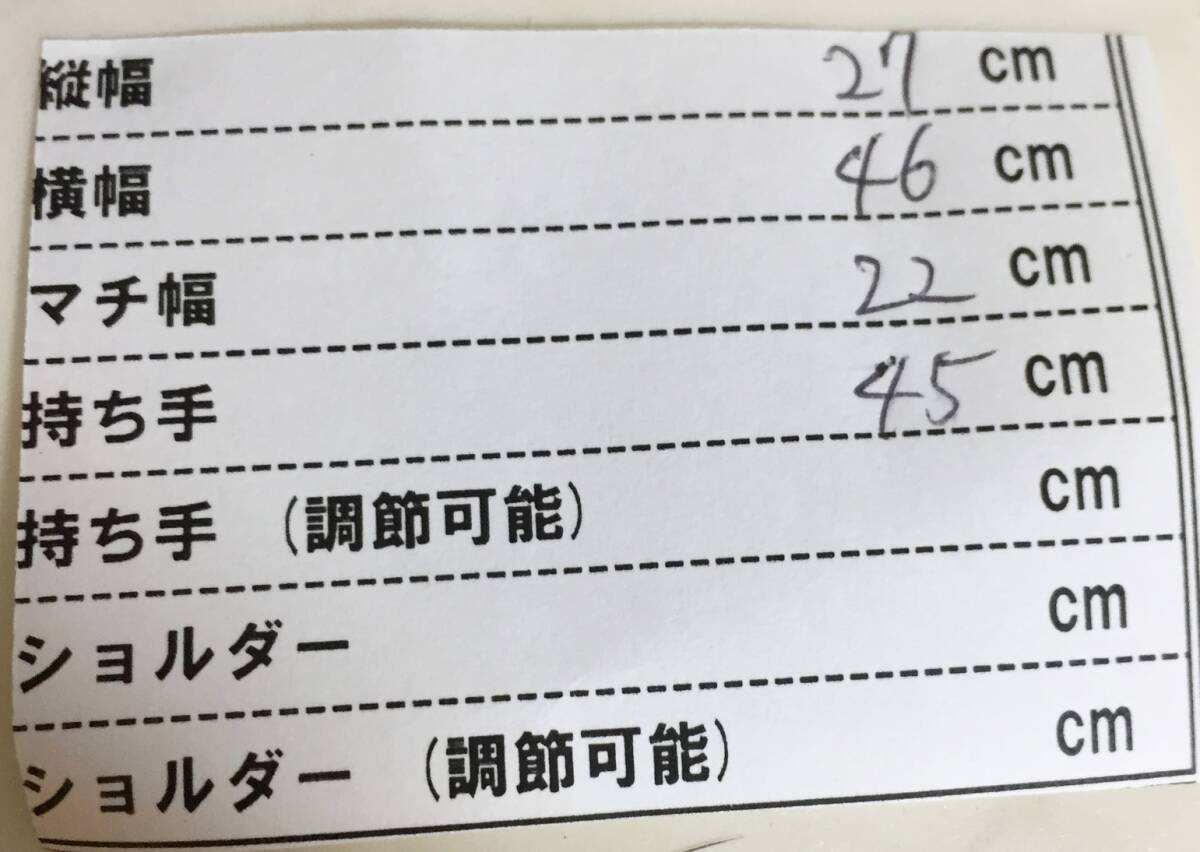 縦幅 27 cm
横幅 46 cm
マチ幅 22 cm
持ち手 45 cm
持ち手 (調節可能) cm
ショルダー cm
ショルダー (調節可能) cm